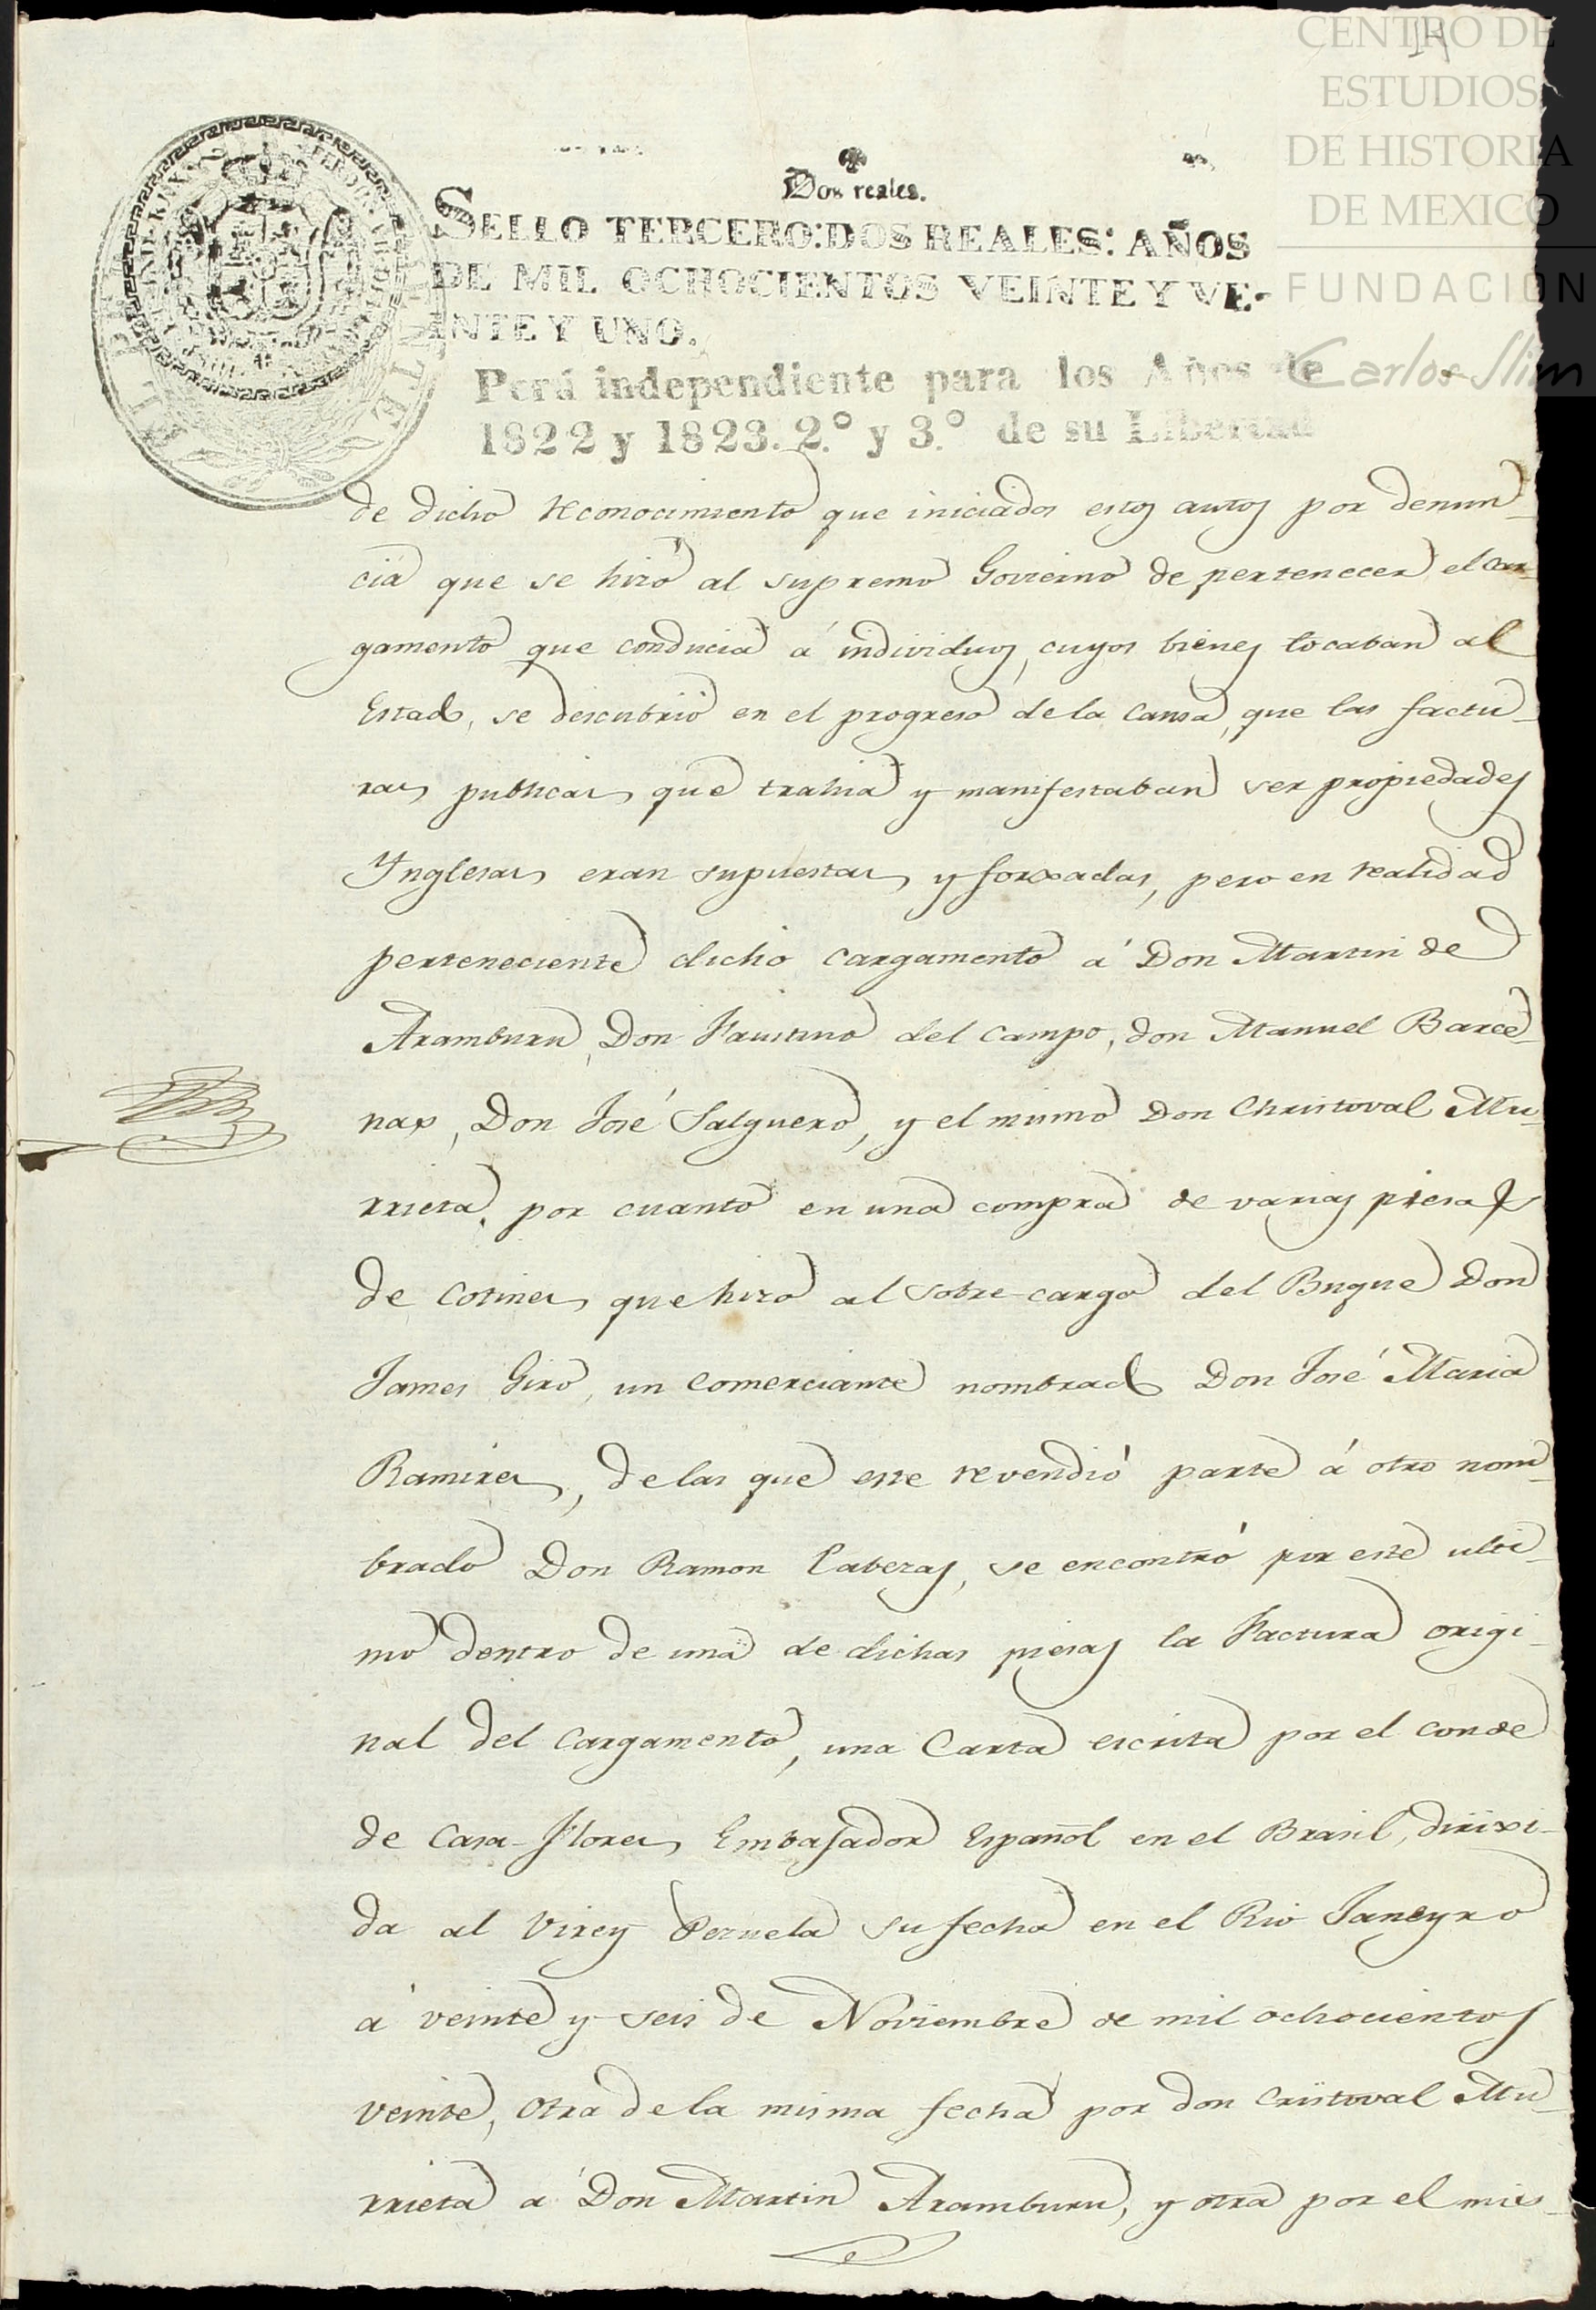 CENTRO DE
ESTUDIOS
DE HISTORIA
DE MEXICO
FUNDACIÓN
Carlos Slim
14
Dos reales.
SELLO TERCERO: DOS REALES: AÑOS
DE MIL OCHOCIENTOS VEINTE Y VE-
INTE Y UNO.
Perú independiente para los Años de
1822 y 1823. 2.º y 3.º de su Libertad
de dicho reconocimiento que iniciados estos autos por denun-
cia que se hizo al supremo Govierno de pertenecer el car-
gamento que conducia á individuos, cuyos bienes tocaban al
Estado, se descubrió en el progreso de la causa, que las factu-
ras publicas que trahia y manifestaban ser propiedades
Ynglesas eran supuestas y forxadas, pero en realidad
perteneciente dicho cargamento á Don Martin de
Aramburu, Don Faustino del Campo, don Manuel Barce-
nas, Don José Salguero, y el mismo Don Christoval Mu-
rrieta, por cuanto en una compra de varias piesas
de cotines que hizo al sobre-cargo del Buque Don
James Giro, un comerciante nombrado Don José Maria
Ramires, de las que este revendió parte á otro nom-
brado Don Ramon Cabezas, se encontró por este ulti-
mo dentro de una de dichas piesas la Factura origi-
nal del Cargamento, una Carta escrita por el conde
de Casa-Flores Embajador Español en el Brasil, dirixi-
da al Virey Pezuela su fecha en el Rio Janeyro
á veinte y seis de Noviembre de mil ochocientos
veinte, otra de la misma fecha por don Cristoval Mu-
rrieta á Don Martin Aramburu, y otra por el mis-